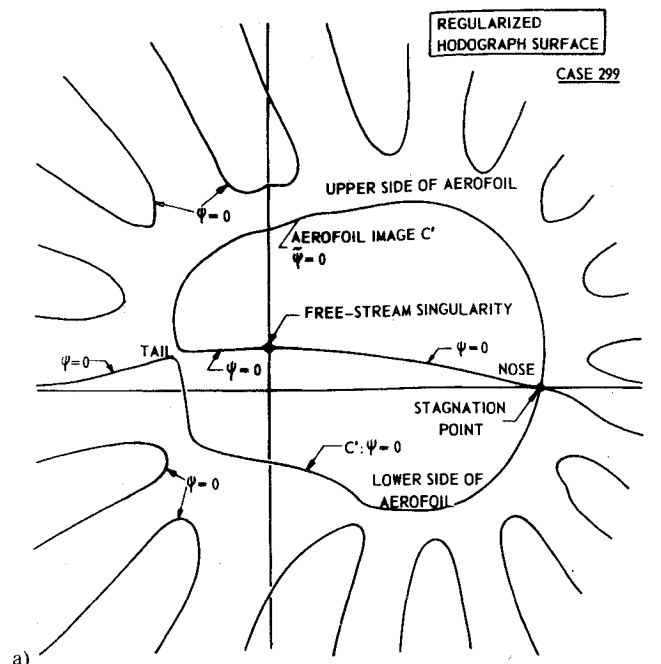 REGULARIZED
HODOGRAPH SURFACE
CASE 299
UPPER SIDE OF AEROFOIL
ψ=0
AEROFOIL IMAGE C'
ψ̃=0
FREE-STREAM SINGULARITY
TAIL
ψ=0
ψ=0
ψ=0
NOSE
STAGNATION
POINT
C':ψ=0
ψ=0
LOWER SIDE OF
AEROFOIL
a)